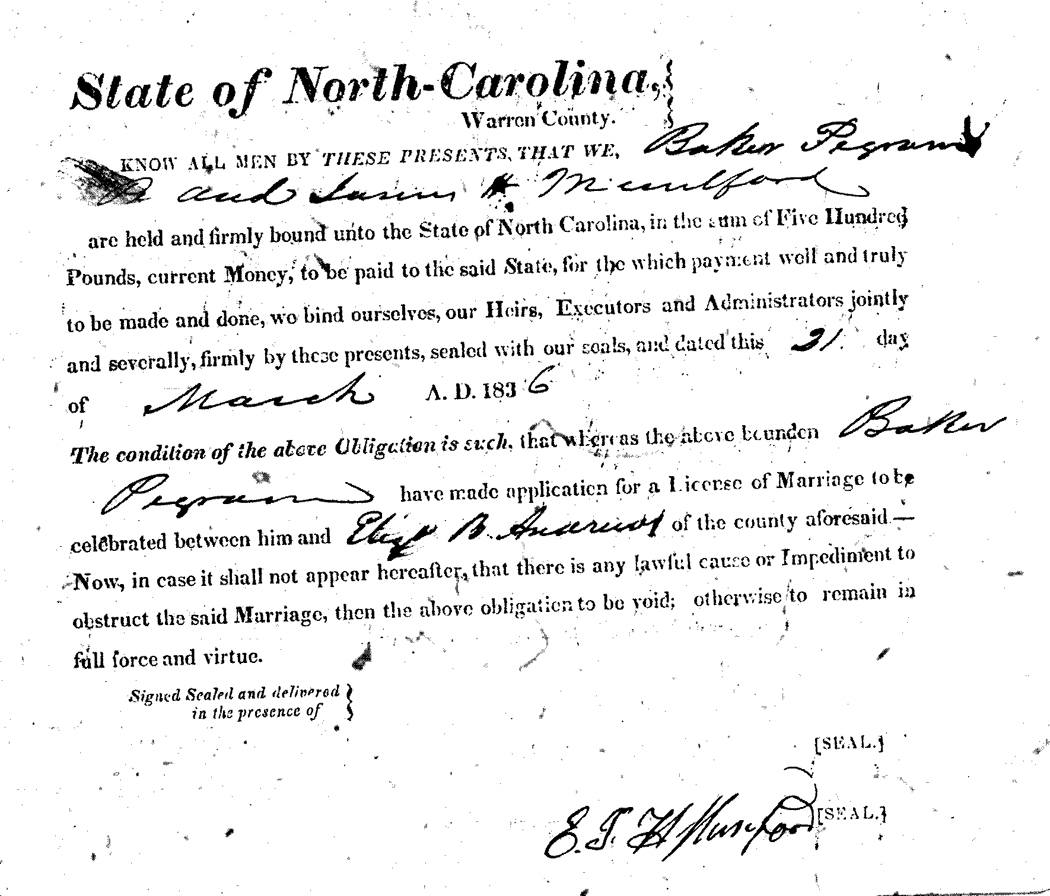 State of North-Carolina,
Warren County.
KNOW ALL MEN BY THESE PRESENTS, THAT WE, Baker Pegram
and H
are held and firmly bound unto the State of North Carolina, in the sum of Five Hundred
Pounds, current Money, to be paid to the said State, for the which payment well and truly
to be made and done, we bind ourselves, our Heirs, Executors and Administrators jointly
and severally, firmly by these presents, sealed with our seals, and dated this 31 day
of March A. D. 1836
The condition of the above Obligation is such, that whereas the above bounden Baker
Pegram have made application for a License of Marriage to be
celebrated between him and Eliza B. Andrews of the county aforesaid—
Now, in case it shall not appear hereafter, that there is any lawful cause or Impediment to
obstruct the said Marriage, then the above obligation to be void; otherwise to remain in
full force and virtue.
Signed Sealed and delivered
in the presence of
[SEAL.]
E. T. H [SEAL.]